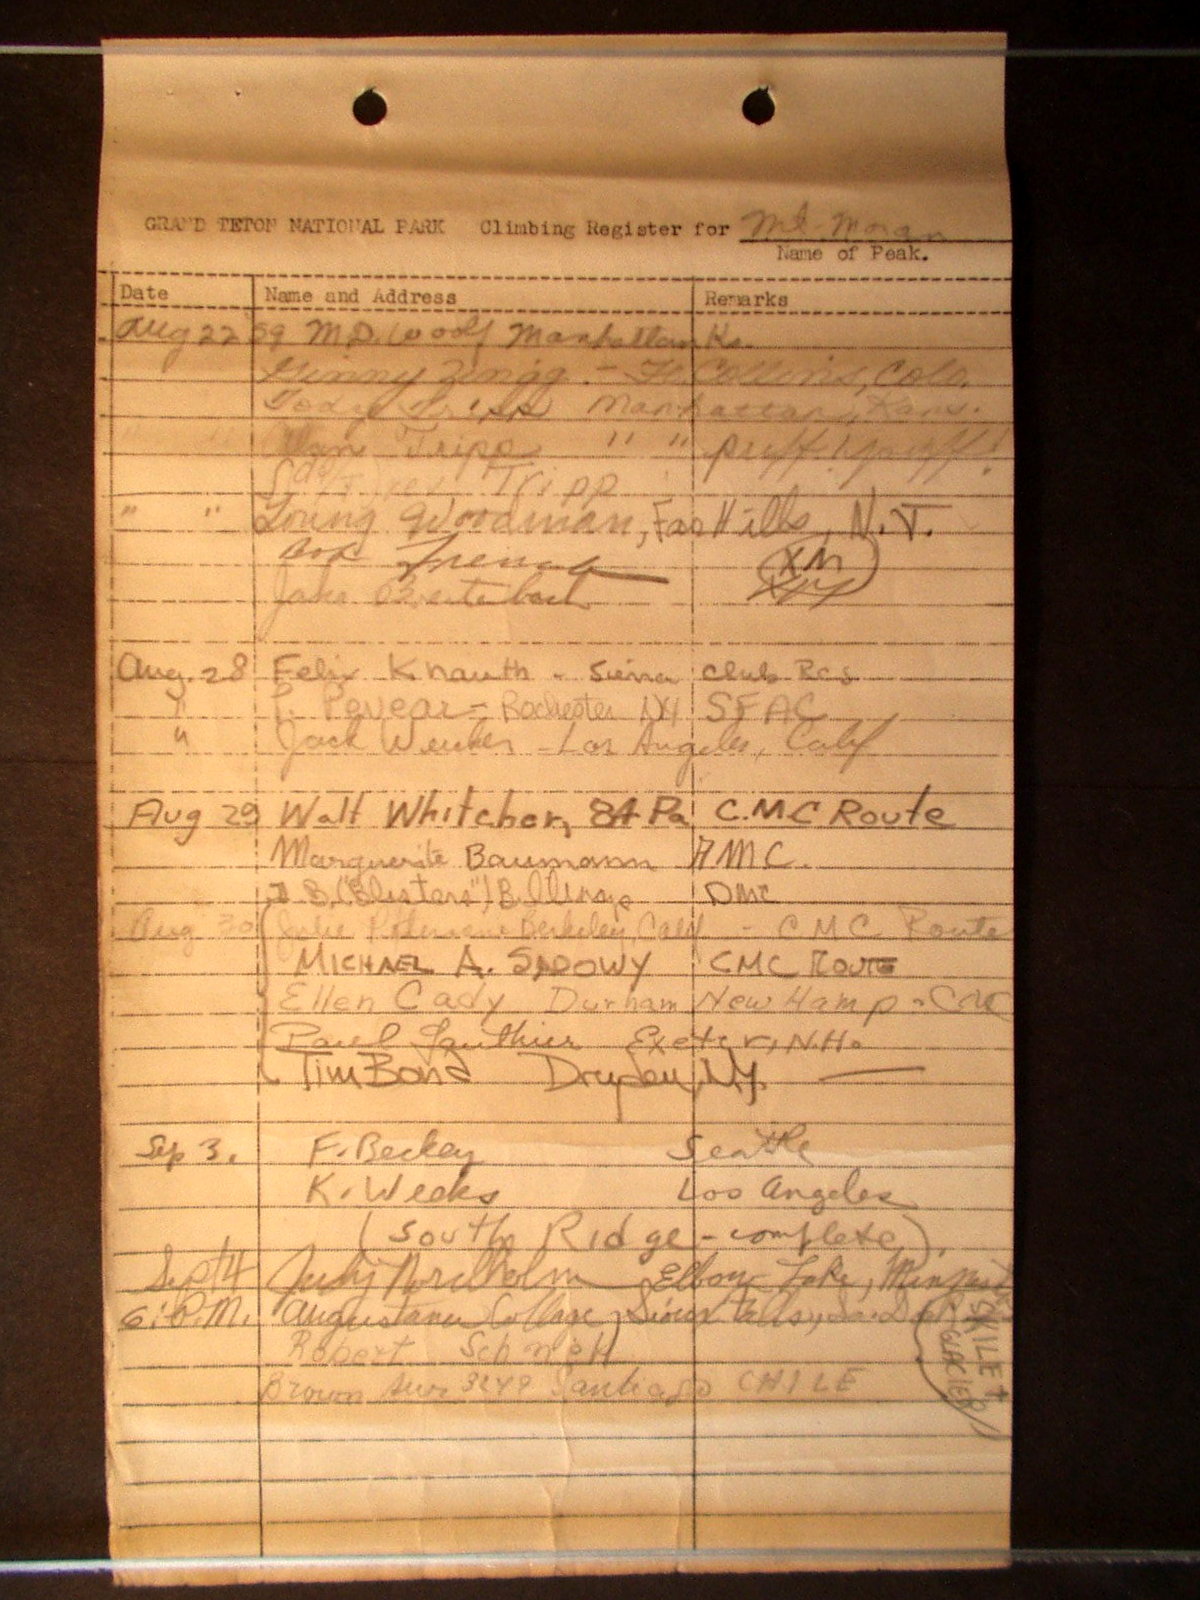 GRAND TETON NATIONAL PARK Climbing Register for Mt. Moran
Name of Peak.
Date Name and Address Remarks
Aug 22 '59 M.D. Woolf Manhattan Ks.
Ginny Zingg - Ft. Collins, Colo.
Tripp Manhattan, Kans.
" " Alan Tripp " " puff! puff!
Tripp
" " Young Woodman, Far Hills, N.J.
Bob French
Jake Breitenbach
Aug. 28 Felix Knauth - Sierra Club RCS
" P. Pevear - Rochester NY SFAC
" Jack Weicker - Los Angeles, Calif
Aug 29 Walt Whitcher, Pa C.M.C Route
Marguerite Baumann AMC.
J.B. ("Blisters") Billings DMC
Aug 30 Julie Petersen Berkeley, Calif - CMC Route
MICHAEL A. SADOWY CMC ROUTE
Ellen Cady Durham New Hamp - CMC
Paul Gauthier Exeter, N.H.
Tim Bond Dryden, N.Y. —
Sep 3. F. Beckey Seattle
K. Weeks Los Angeles
(South Ridge - complete).
Sept 4 Judy Nordholm Elbow Lake, Minnesota
6: P.M. Augustana College, Sioux Falls, So. Dak
Robert
Brown 3249 Santiago CHILE
(SKILLET GLACIER)